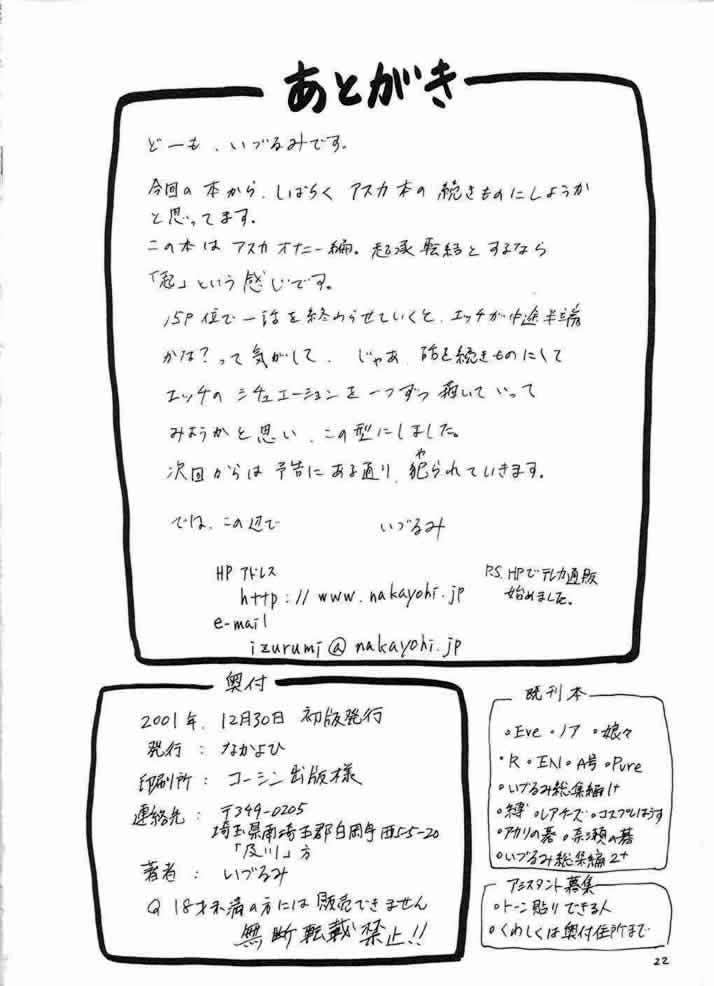 あとがき
どーも、いづるみです。
今回の本から、しばらく アスカ本の 続きものにしようか
と思ってます。
この本は アスカオナニー編。起承転結とするなら
「起」という感じです。
15P位で一話を終わらせていくと、エッチが中途半端
かな?って気がして、じゃあ、話を続きものにして
エッチの シチュエーションを一つずつ 描いていって
みようかと思い、この型にしました。
次回からは 予告にある通り、犯(や)られていきます。
では、この辺で いづるみ
HP アドレス
http://www.nakayohi.jp
P.S. HPでテレカ通販
始めました。
e-mail
izurumi@nakayohi.jp
奥付
2001年、12月30日 初版発行
発行 : なかよひ
印刷所 : コーシン出版様
連絡先 : 〒349-0205
埼玉県南埼玉郡白岡町西5-5-20
「及川」方
著者 : いづるみ
18才未満の方には 販売できません
無断転載禁止!!
既刊本
○Eve ○ノア ○娘々
○R ○EN ○A号 ○Pure
○いづるみ総集編1+
○縛 ○レアチーズ ○コスプレはうす
○アカリの碁 ○奈瀬の碁
○いづるみ総集編2+
アシスタント募集
○トーン貼りできる人
○くわしくは奥付住所まで
22